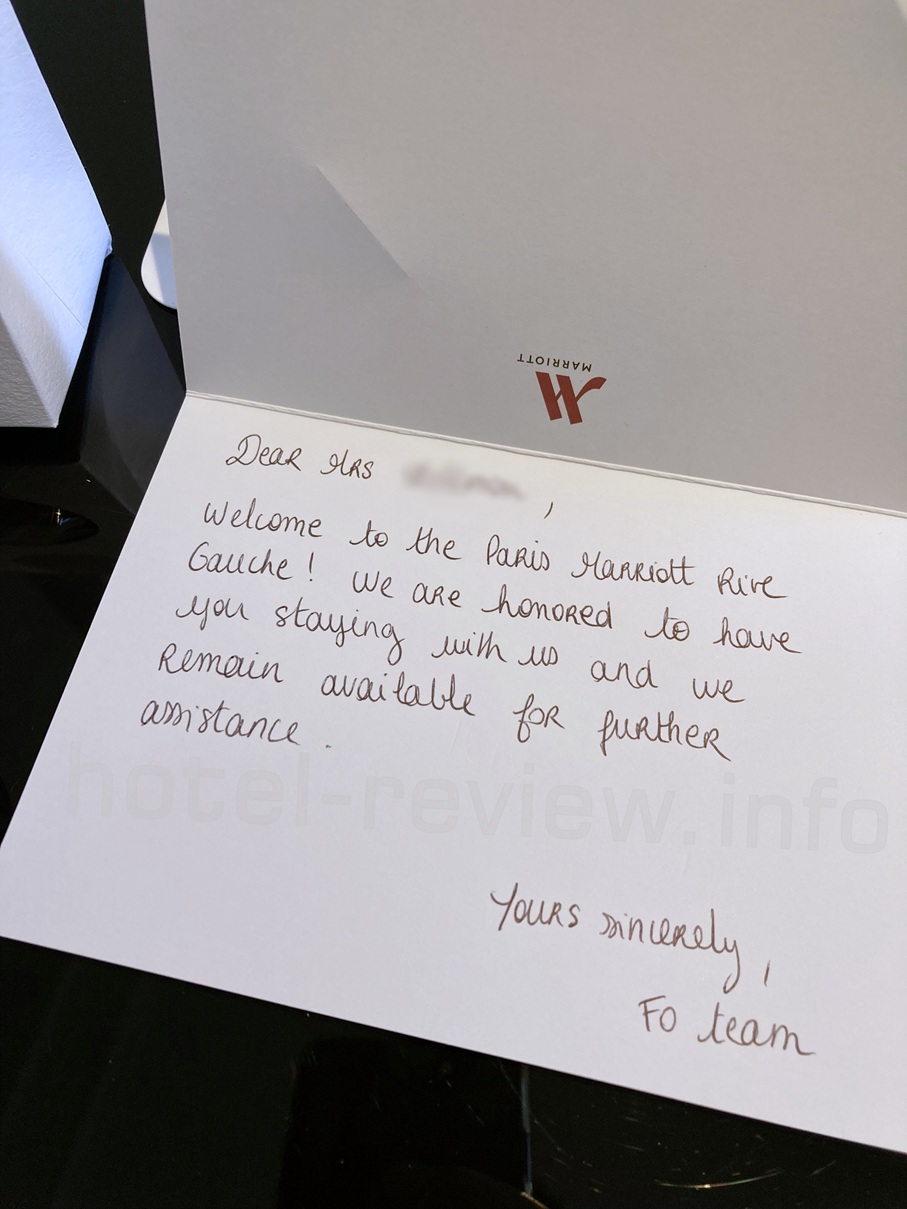 MARRIOTT
Dear Mrs ,
Welcome to the Paris Marriott Rive
Gauche! We are honored to have
you staying with us and we
remain available for further
assistance.
hotel-review.info
Yours sincerely,
FO team